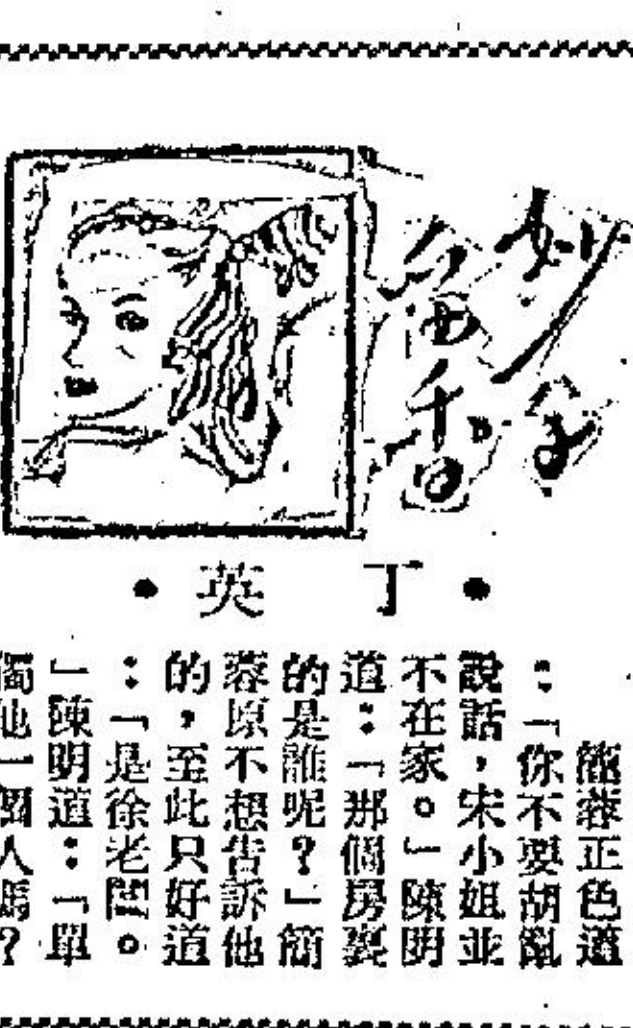 妙
留香
•丁英•
簡蓉正色道
：「你不要胡亂
說話，宋小姐並
不在家。」陳明
道：「那個房裏
的是誰呢？」簡
蓉原不想告訴他
的，至此只好道
：「是徐老闆。
」陳明道：「單
獨他一個人嗎？